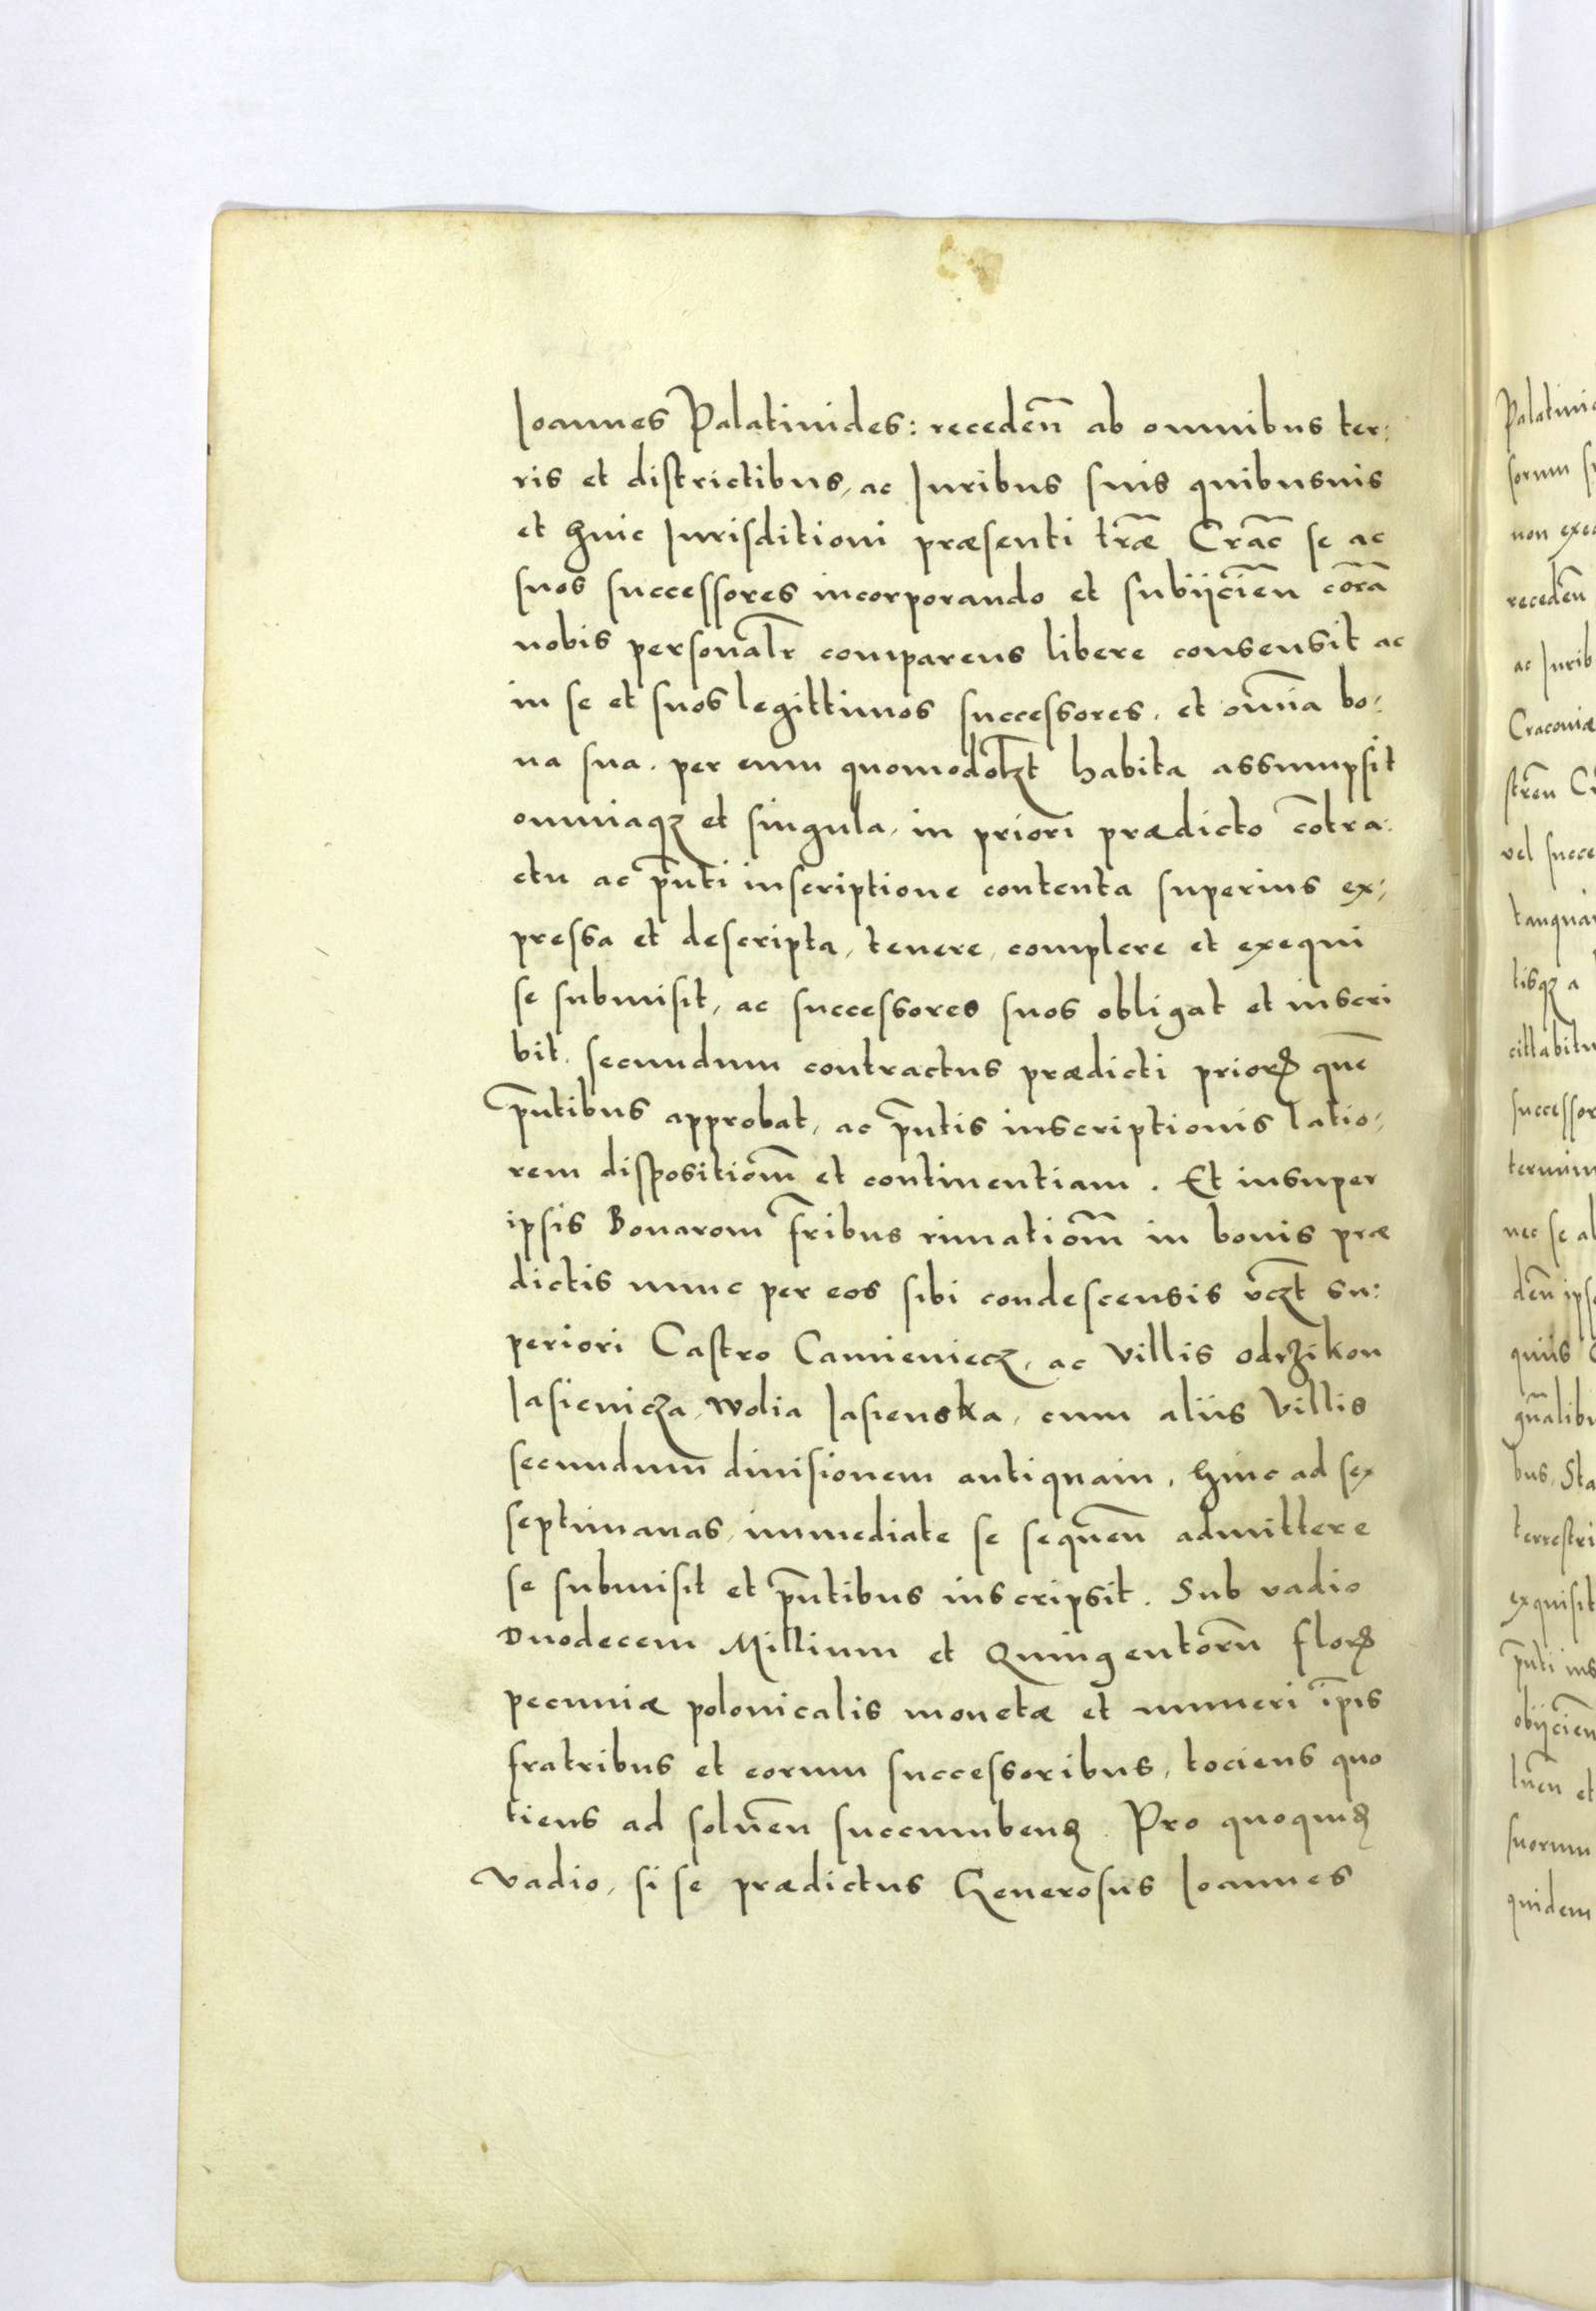 Ioannes Palatinides: recedeñ ab omnibus ter:
ris et districtibus, ac Iuribus suis quibusuis
et huic Iurisditioni præsenti tr̃æ Crac̃ se ac
suos successores incorporando et subijcieñ cor̃a
nobis personal̃r comparens libere consensit ac
in se et suos legittimos successores, et om̃ia bo:
na sua. per eum quomodolꝫt habita assumpsit
omniaqꝫ et singula, in priori prædicto cõtra:
ctu ac p̃nti inscriptione contenta superius ex:
pressa et descripta, tenere, complere et exequi
se submisit, ac successores suos obligat et inscri
bit. secundum contractus prædicti priorꝭ quẽ
p̃ntibus approbat, ac p̃ntis inscriptionis latio:
rem dispositiom̃ et continentiam. Et insuper
ipsis Bonarom fr̃ibus rimatiom̃ in bonis præ
dictis nunc per eos sibi condescensis vcꝫt su:
periori Castro Camieniecz, ac Villis odrzikon
Iasienicza, Wolia Iasienska, cum alijs Villis
secundum diuisionem antiquam, hinc ad sex
septimanas, immediate se sequeñ admittere
se submisit et p̃ntibus inscripsit. Sub vadio
Duodecem Millium et Quingentorũ florꝭ
pecuniæ polonicalis monetæ et numeri ip̃is
fratribus et eorum successoribus, tociens quo
tiens ad solueñ succumbenꝭ. Pro quoquidꝭ
vadio, si se prædictus Generosus Ioannes
Palatini
sorum
non exe
recedeñ
ac Iurib
Cracouiæ
streñ
vel succe
tanqua
tisqꝫ a
cittabitu
successor
termin
nec se a
deñ ips
quiis
gñalibu
bus, Sta
terrestri
exquisit
p̃nti ins
obijcieñ
lueñ et
suorum
quidem